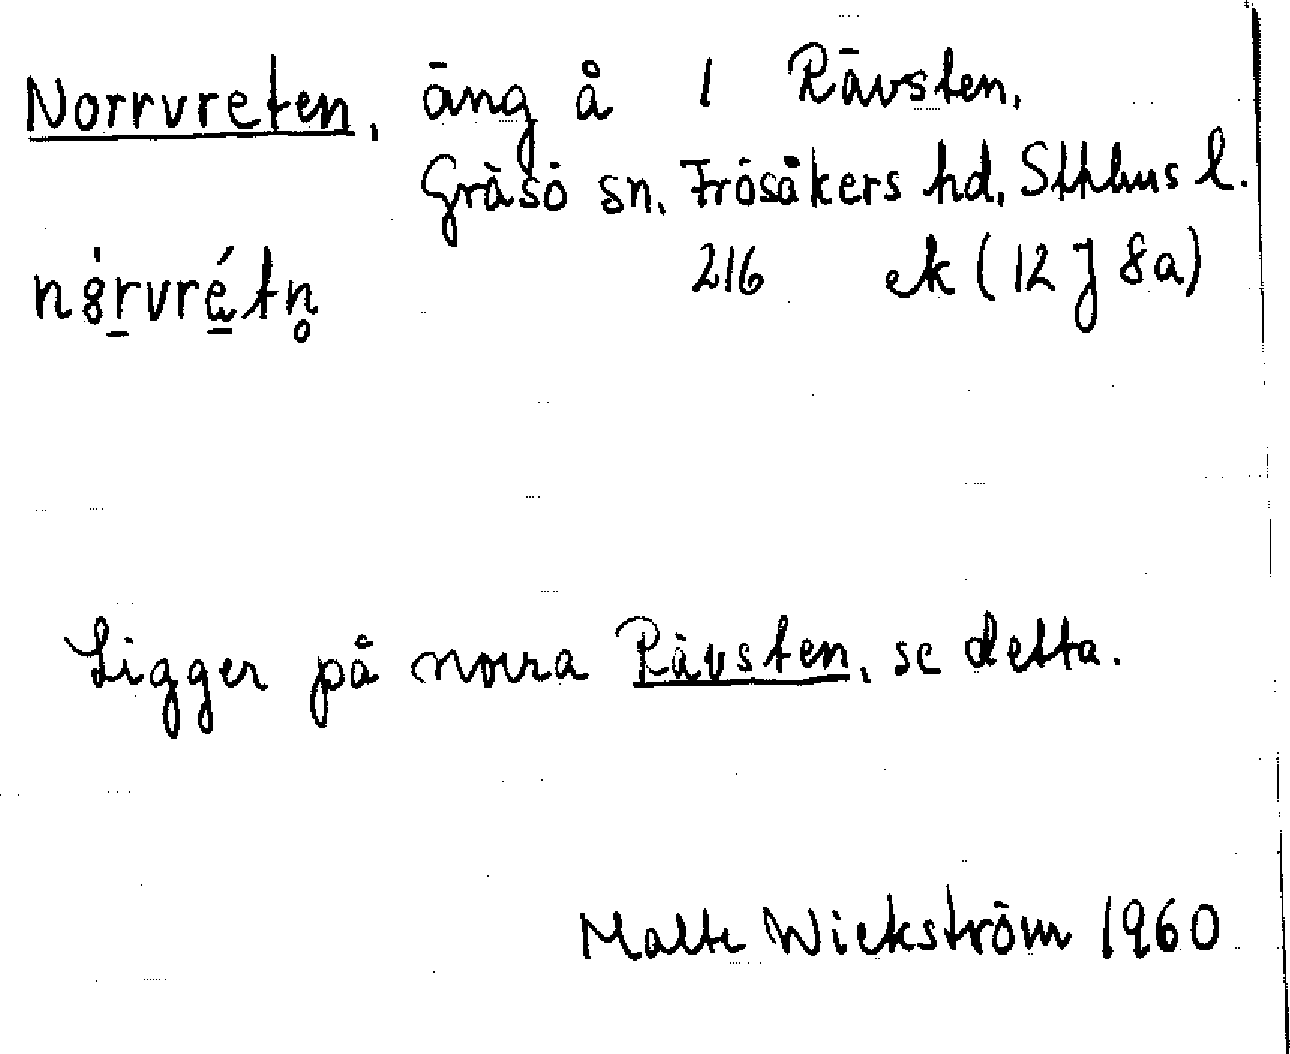 Norrvreten, äng å 1 Rävsten,
Gräsö sn, Frösåkers hd, Sthlms l.
216 ek (12 J 8a)
Ligger på norra Rävsten, se detta.
Malte Wickström 1960